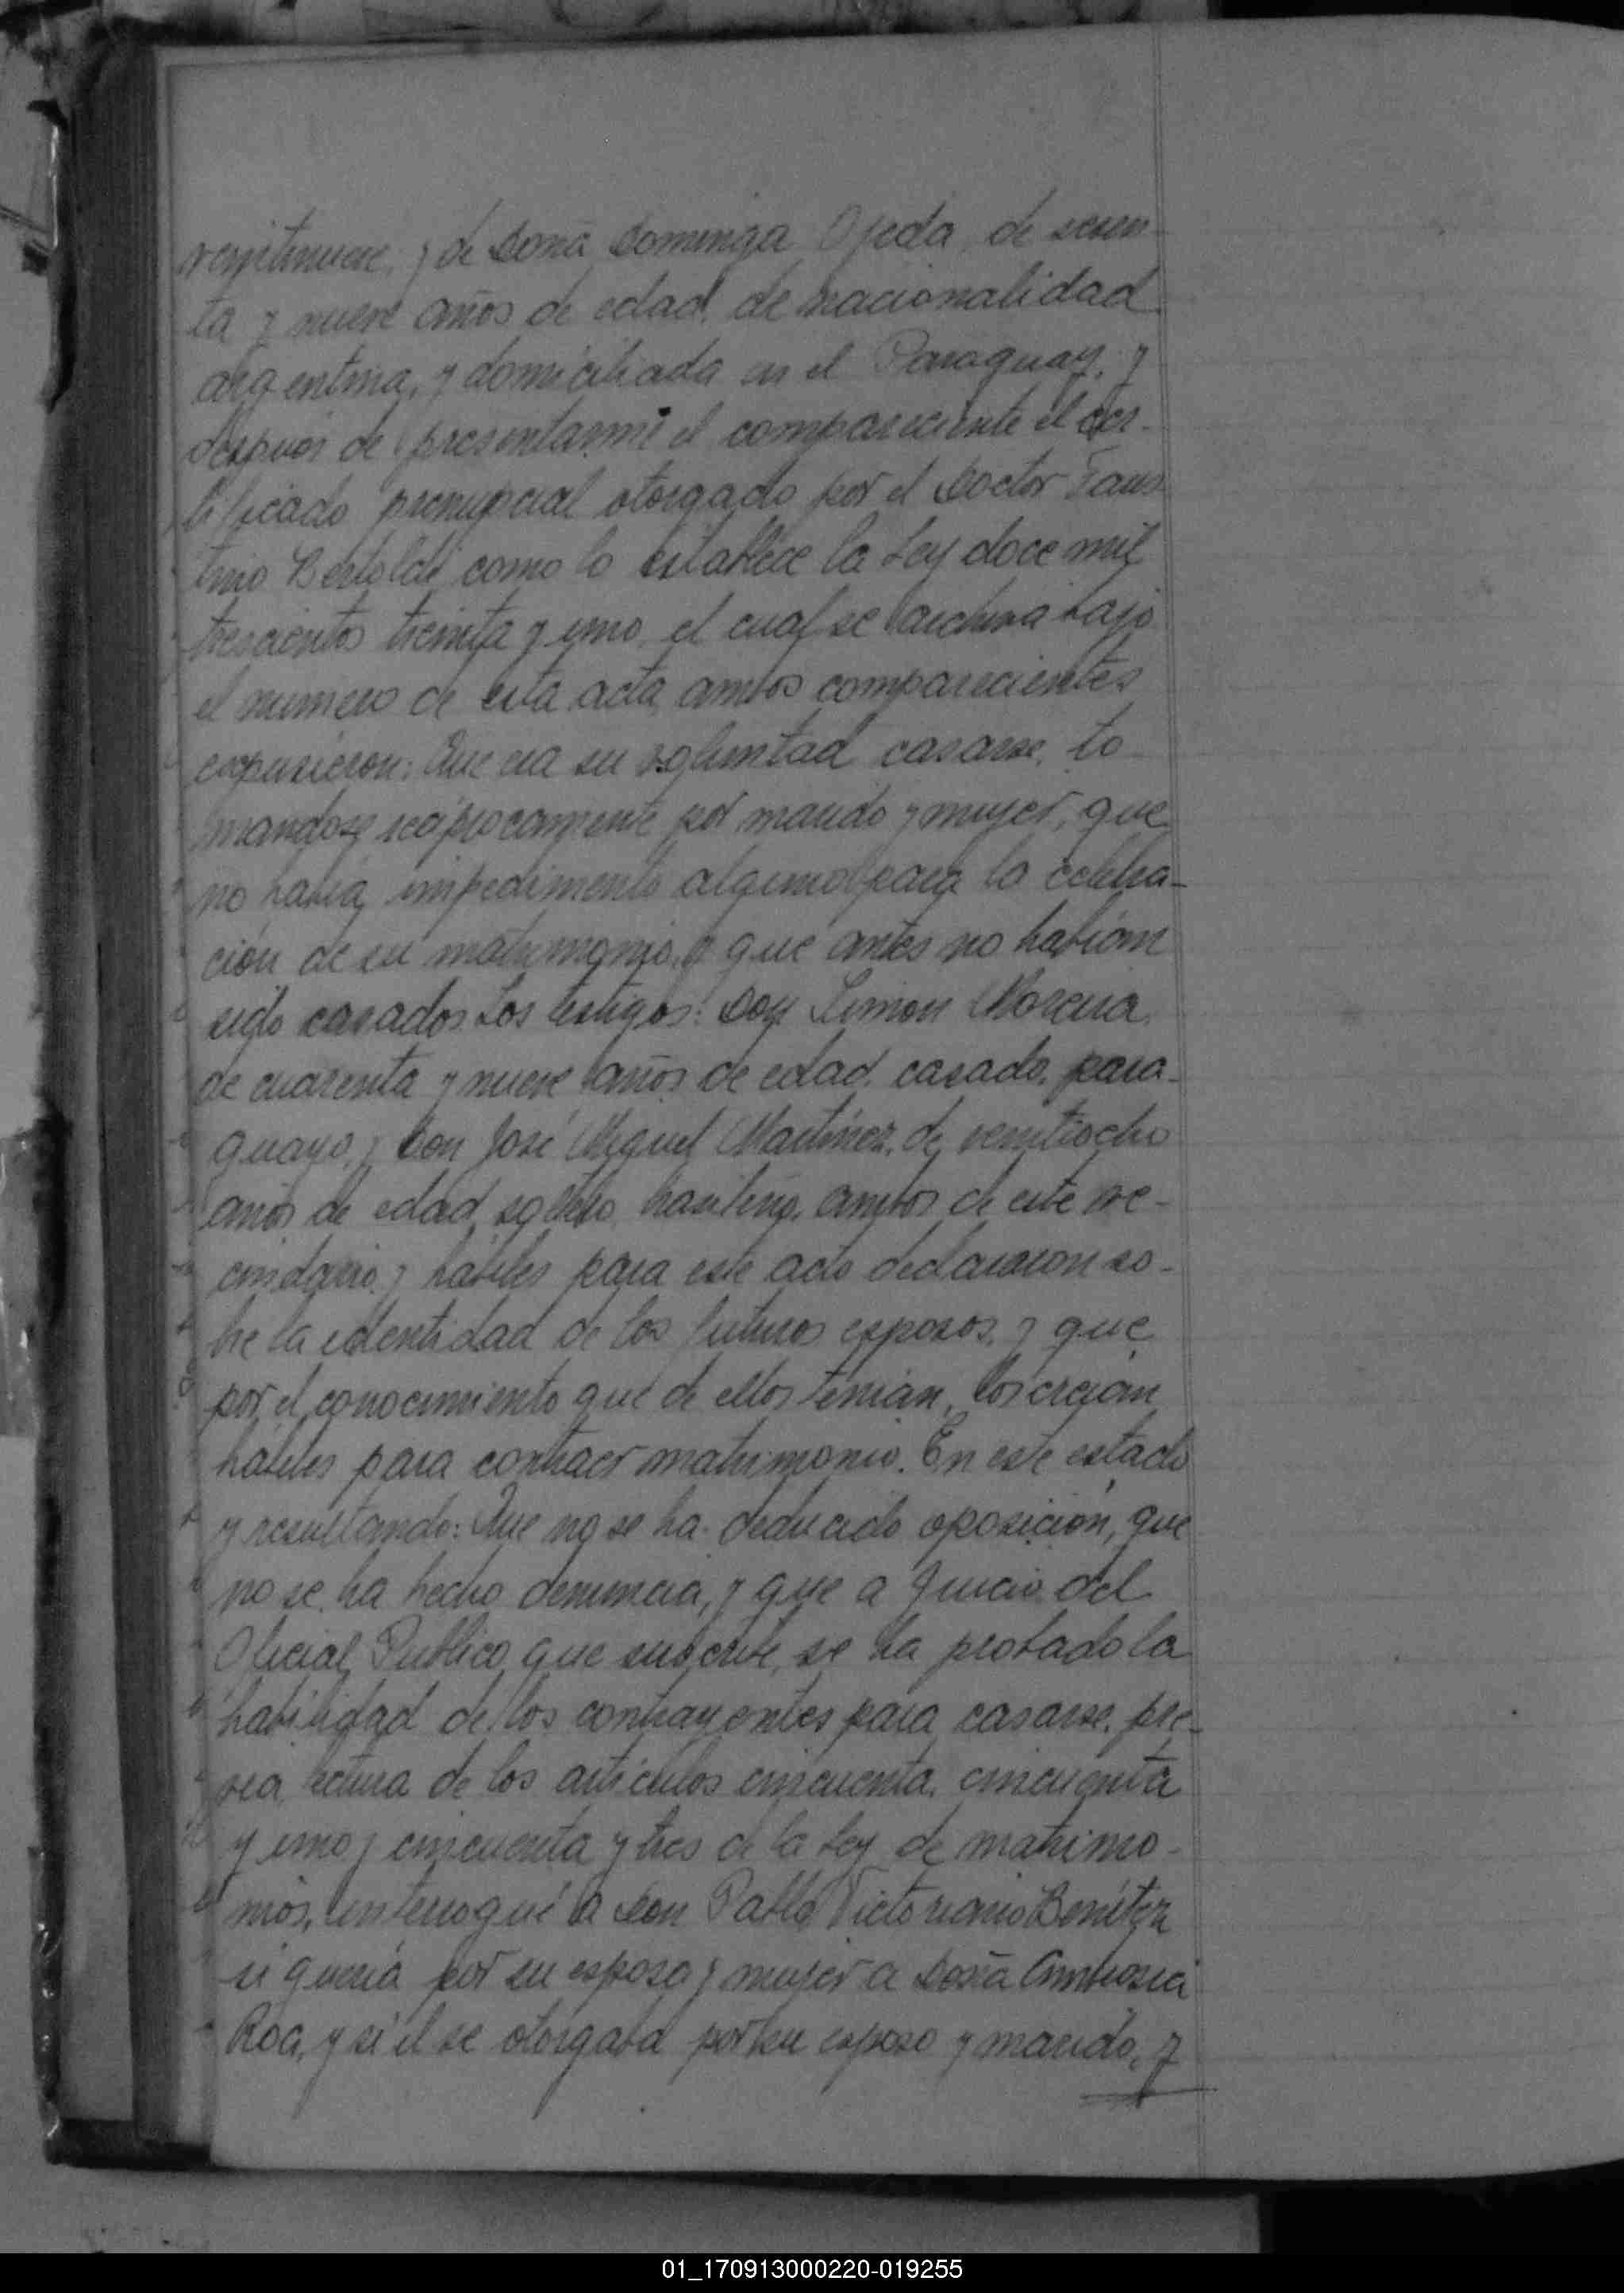 veintinueve, y de Doña Dominga Ojeda, de sesen-
ta y nueve años de edad, de nacionalidad
argentina, y domiciliada en el Paraguay, y
después de presentarme el compareciente el cer-
tificado prenupcial otorgado por el Doctor Faus
tino Bertoldi como lo establece la Ley doce mil
trescientos treinta y uno, el cual se archiva bajo
el numero de esta acta, ambos comparecientes
expusieron: Que era su voluntad casarse, to-
mandose recíprocamente por marido y mujer, que
no había impedimento alguno para la celebra-
ción de su matrimonio, y que antes no habían
sido casados. Los testigos: Don Simon Moreira,
de cuarenta y nueve años de edad, casado, para-
guayo, y Don José Miguel Martinez, de veintiocho
años de edad, soltero, brasileño, ambos de este ve-
cindario, y hábiles para este acto declararon so-
bre la identidad de los futuros esposos, y que
por el conocimiento que de ellos tenian, los creian
hábiles para contraer matrimonio. En este estado
y resultando: Que no se ha deducido oposición, que
no se ha hecho denuncia, y que a juicio del
Oficial Publico que suscribe, se ha probado la
habilidad de los contrayentes para casarse, pre-
via lectura de los artículos cincuenta, cincuenta
y uno y cincuenta y tres de la Ley de matrimo-
nios, interrogué a Don Pablo Victoriano Benítez
si quería por su esposa y mujer a Doña Ambrosia
Roa, y si él se otorgaba por su esposo y marido, y
01_170913000220-019255